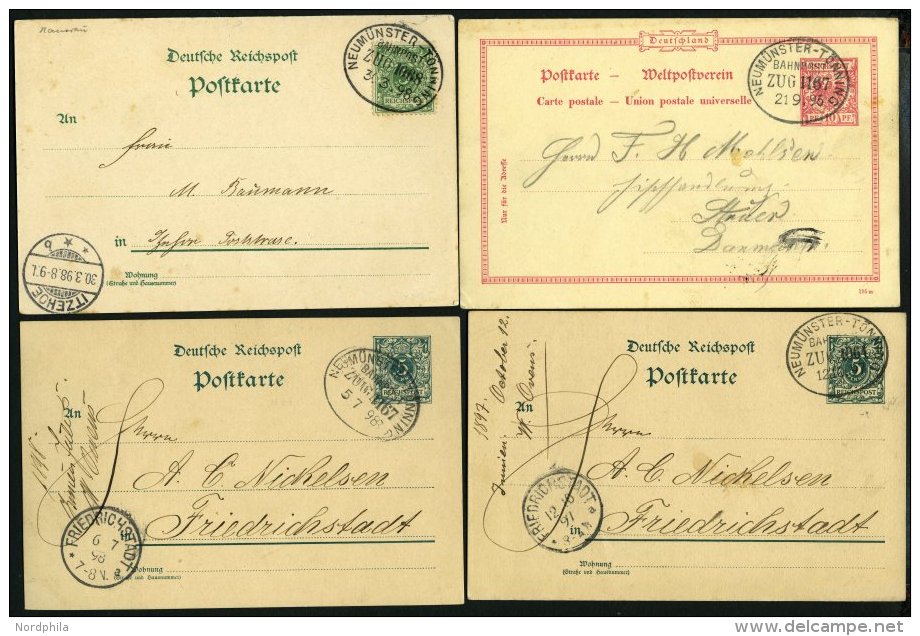 Deutsche Reichspost
Postkarte
NEUMÜNSTER-TÖNNING
BAHNPOST
ZUG
98
REICHSPOST
An
Frau
M. Baumann
in Itzehoe
Wohnung
(Straße und Hausnummer)
ITZEHOE
30.3.98.8-9V.
Deutschland
Postkarte – Weltpostverein
Carte postale – Union postale universelle
NEUMÜNSTER-TÖNNING
BAHNPOST
ZUG 1167
21 9 96
10 PF
Nur für die Adresse
Herrn F. H.
Fischhandlung
Deutsche Reichspost
Postkarte
NEUMÜNSTER-TÖNNING
BAHNPOST
ZUG 1167
5 7 98
5
An
Herrn
A. C. Nickelsen
in Friedrichstadt
Wohnung
(Straße und Hausnummer)
FRIEDRICHSTADT
6 7
98
7-8N.
1897. October 12.
Deutsche Reichspost
Postkarte
NEUMÜNSTER-TÖNNING
ZUG
5
REICHSPOST
An
Herrn
A. C. Nickelsen
in Friedrichstadt
Wohnung
(Straße und Hausnummer)
FRIEDRICHSTADT
12 10
97
Nordphila
delcampe.net